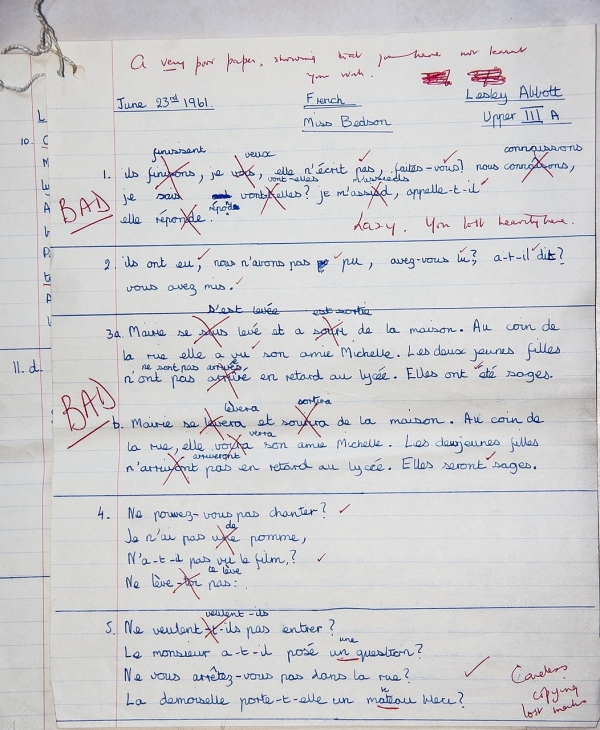 A very poor paper, showing that you have not learnt
your work.
June 23rd 1961.
French
Lesley Abbott
Miss Bedson
Upper III A
finissent
veux
connaissons
1. ils finirons, je vois, elle n'écrit pas, faites-vous? nous connaisons,
vont-elles
m'assieds
je sais vont-t-elles? je m'assied, appelle-t-il
répond
BAD
elle réponde.
Lazy. You lost heavily here.
2. ils ont eu, nous n'avons pas pu, avez-vous lu? a-t-il dit?
vous avez mis.
s'est levée
est sortie
3a. Marie se suis levé et a sorti de la maison. Au coin de
la rue elle a vu son amie Michelle. Les deux jeunes filles
ne sont pas arrivées
n'ont pas arrivé en retard au lycée. Elles ont été sages.
BAD
lèvera
sortira
b. Marie se levera et soutira de la maison. Au coin de
verra
la rue, elle voira son amie Michelle. Les deux jeunes filles
arriveront
n'arrivont pas en retard au lycée. Elles seront sages.
4. Ne pouvez-vous pas chanter?
de
Je n'ai pas une pomme,
N'a-t-il pas vu le film?
te lève
Ne lève-toi pas.
veulent-ils
5. Ne veulent-t-ils pas entrer?
une
Le monsieur a-t-il posé un question?
Ne vous arrêtez-vous pas dans la rue?
La demoiselle porte-t-elle un mateau bleu?
Careless
copying
lost marks
10.
11. d.